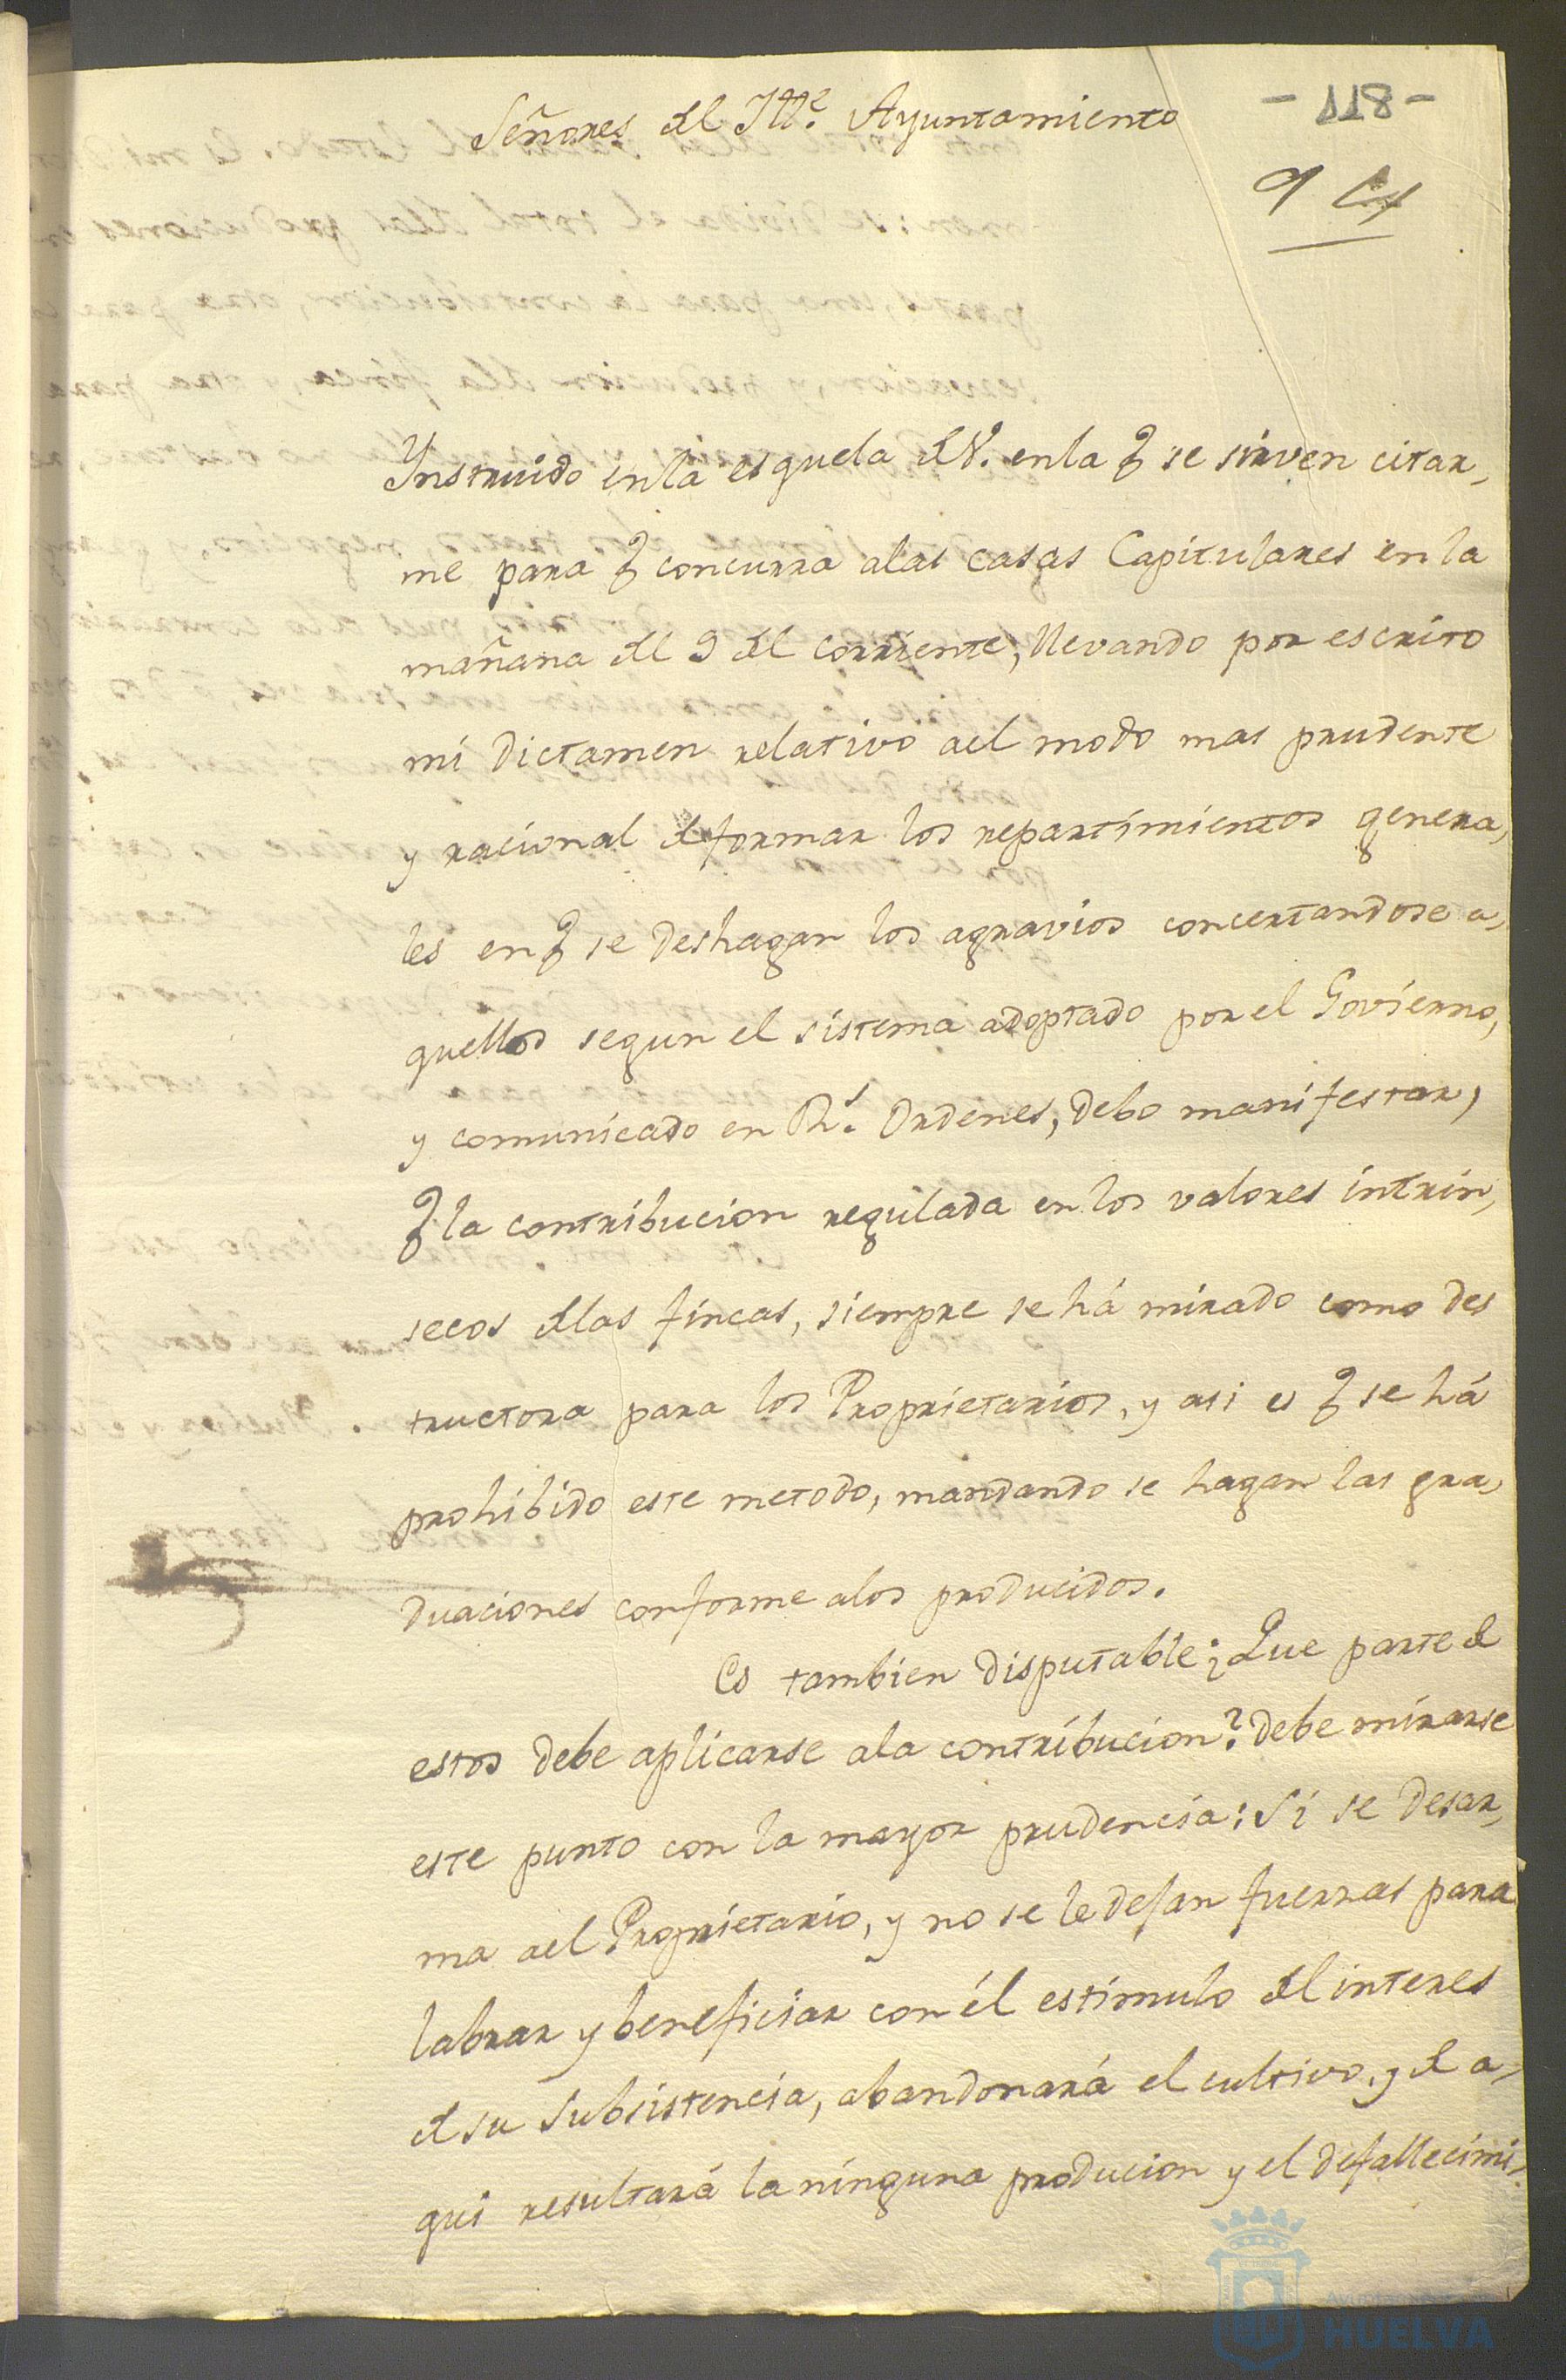 - 118 -
Señores del Itt.e Ayuntamiento
9
Ynstruido en la esquela d V. en la q se sirven citar,
me para q concurra a las casas Capitulares en la
mañana del 9 del corriente, llevando por escrito
mi Dictamen relativo ael modo mas prudente
y racional de formar los repartimientos genera,
les en q se deshagan los agravios concertandose a,
quellos segun el sistema adoptado por el Govierno,
y comunicado en R.s Ordenes, debo manifestar,
q la contribucion regulada en los valores intrin,
secos de las fincas, siempre se há mirado como des
tructora para los Proprietarios, y asi es q se há
prohibido este metodo, mandando se hagan las gra,
duaciones conforme a los producidos.
Es tambien disputable; ¿Que parte de
estos debe aplicarse a la contribucion? debe mirarse
este punto con la mayor prudencia: Si se desar,
ma ael Proprietario, y no se le dejan fuerzas para
labrar y beneficiar con él estímulo del interes
de su subsistencia, abandonará el cultivo, y de a,
qui resultará la ninguna producion y el defallecimi,
HUELVA